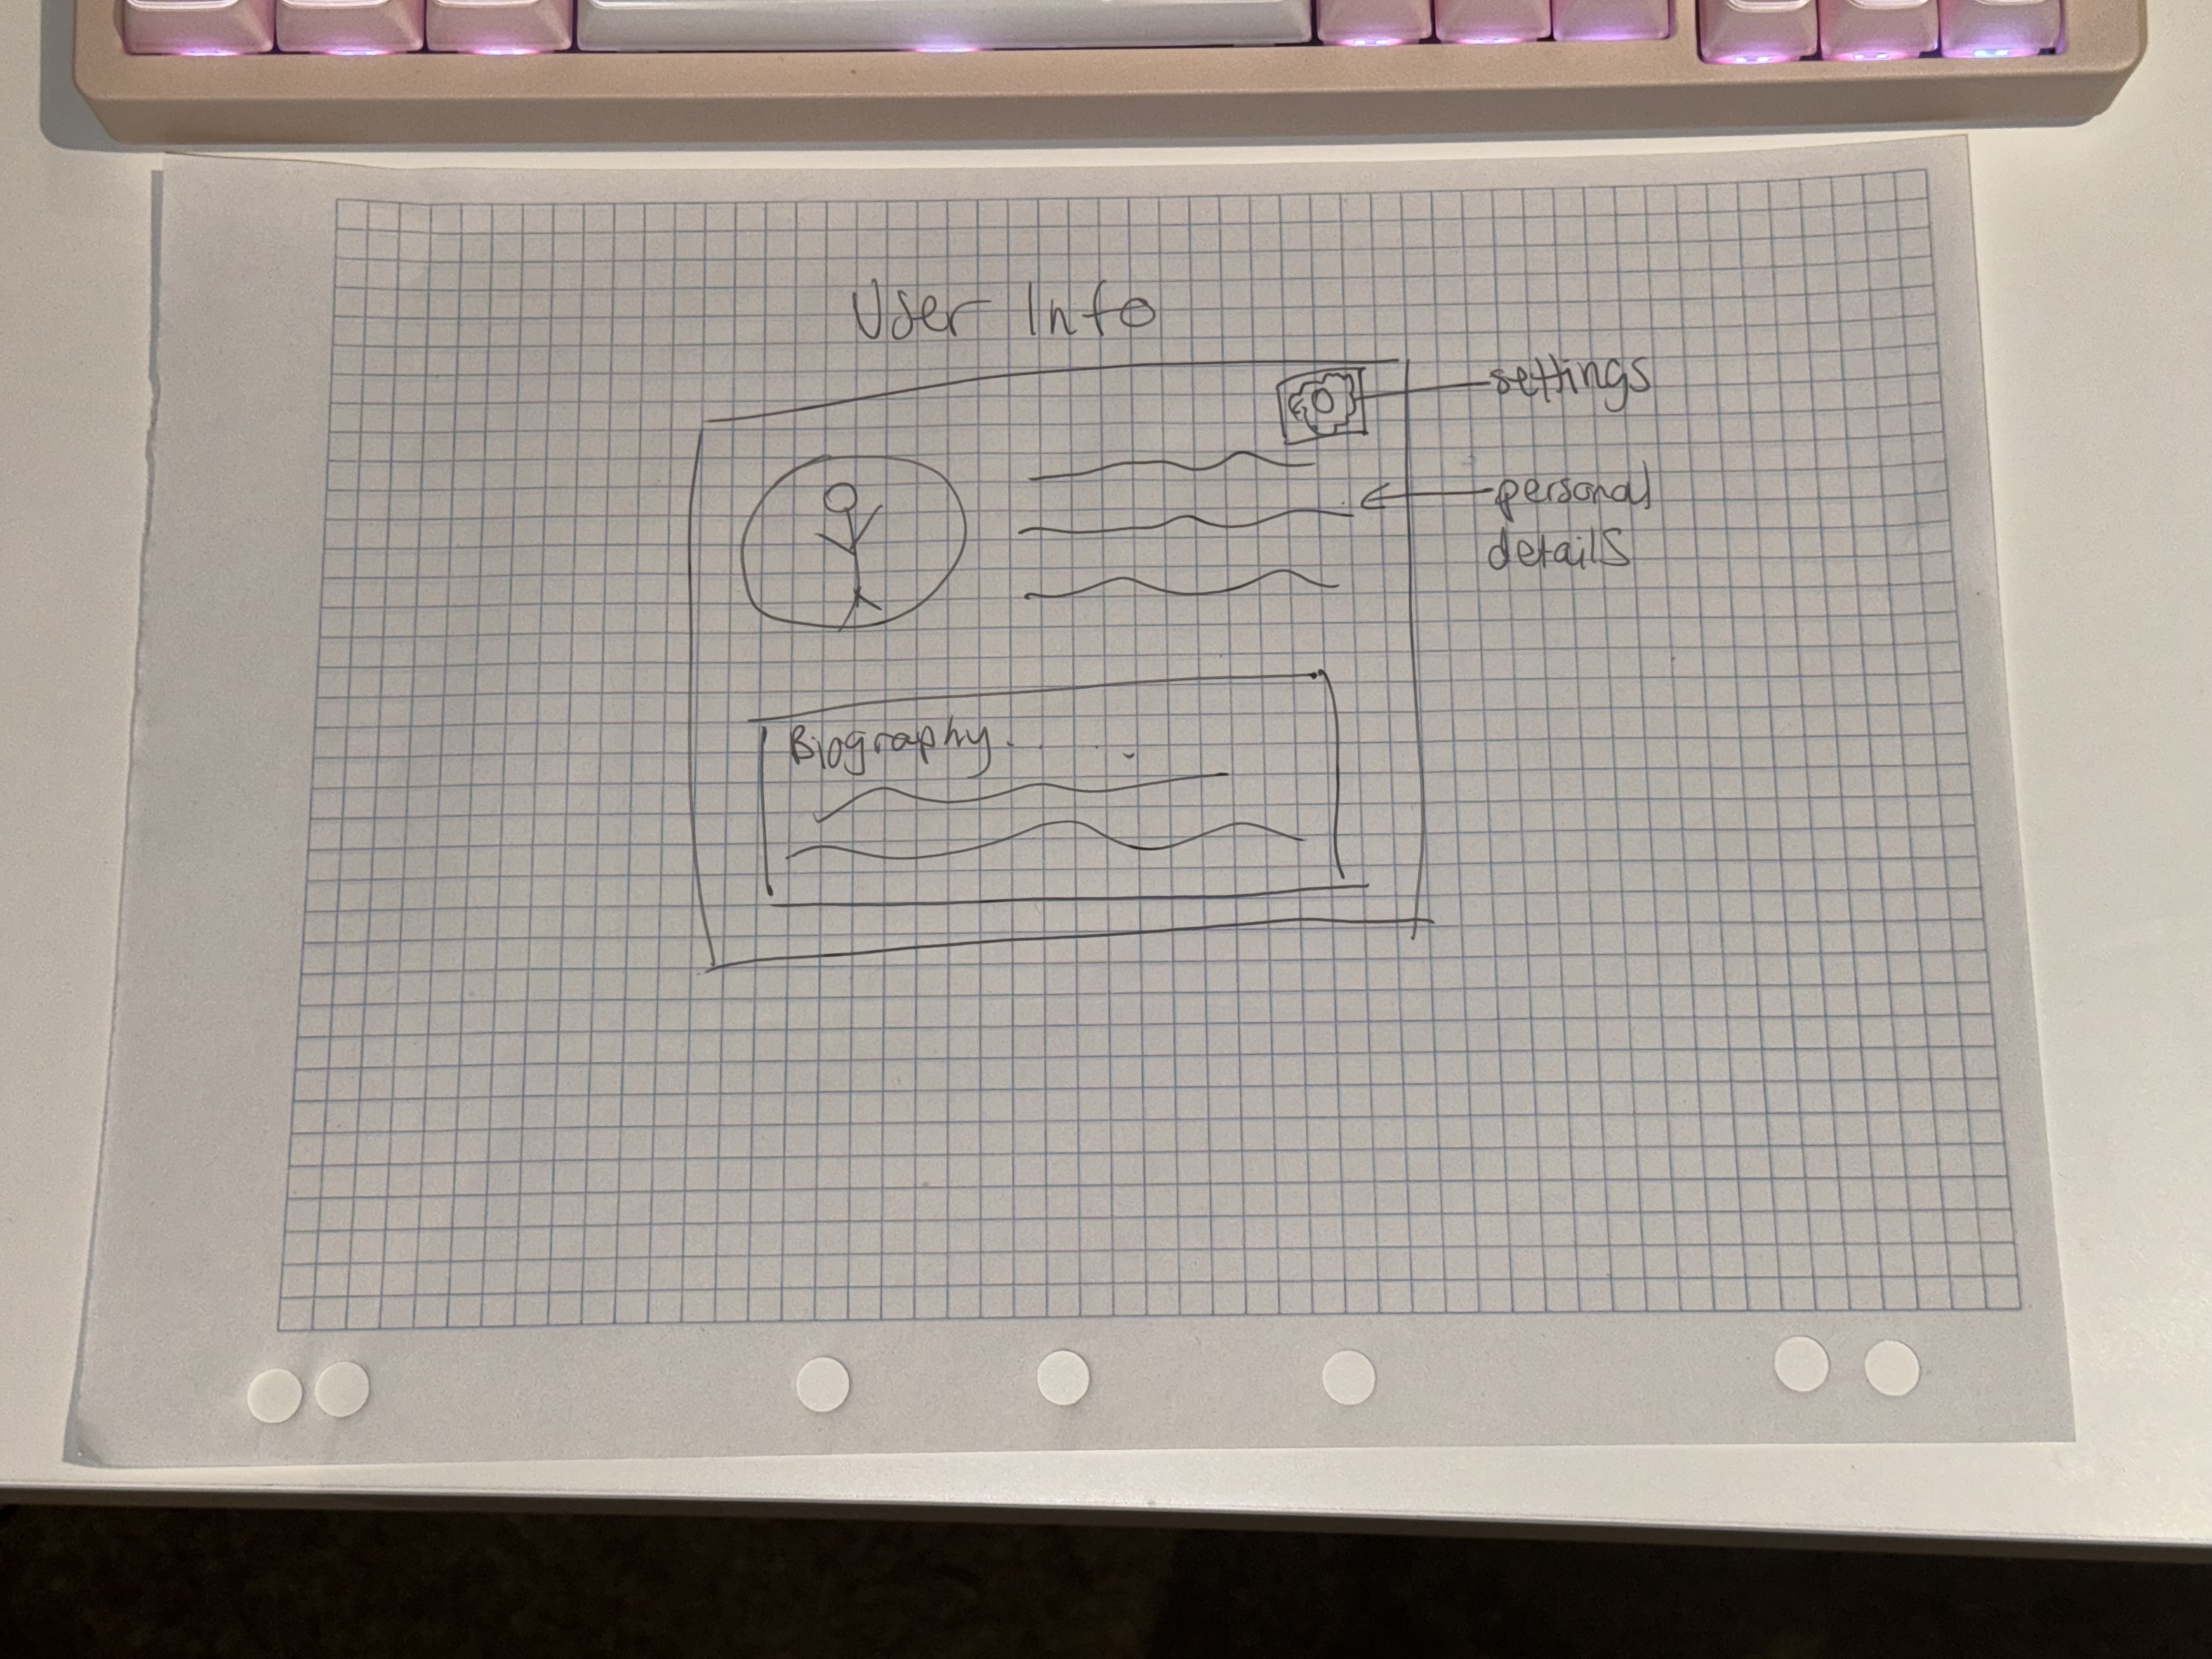 User Info
settings
personal
details
Biography. . . .